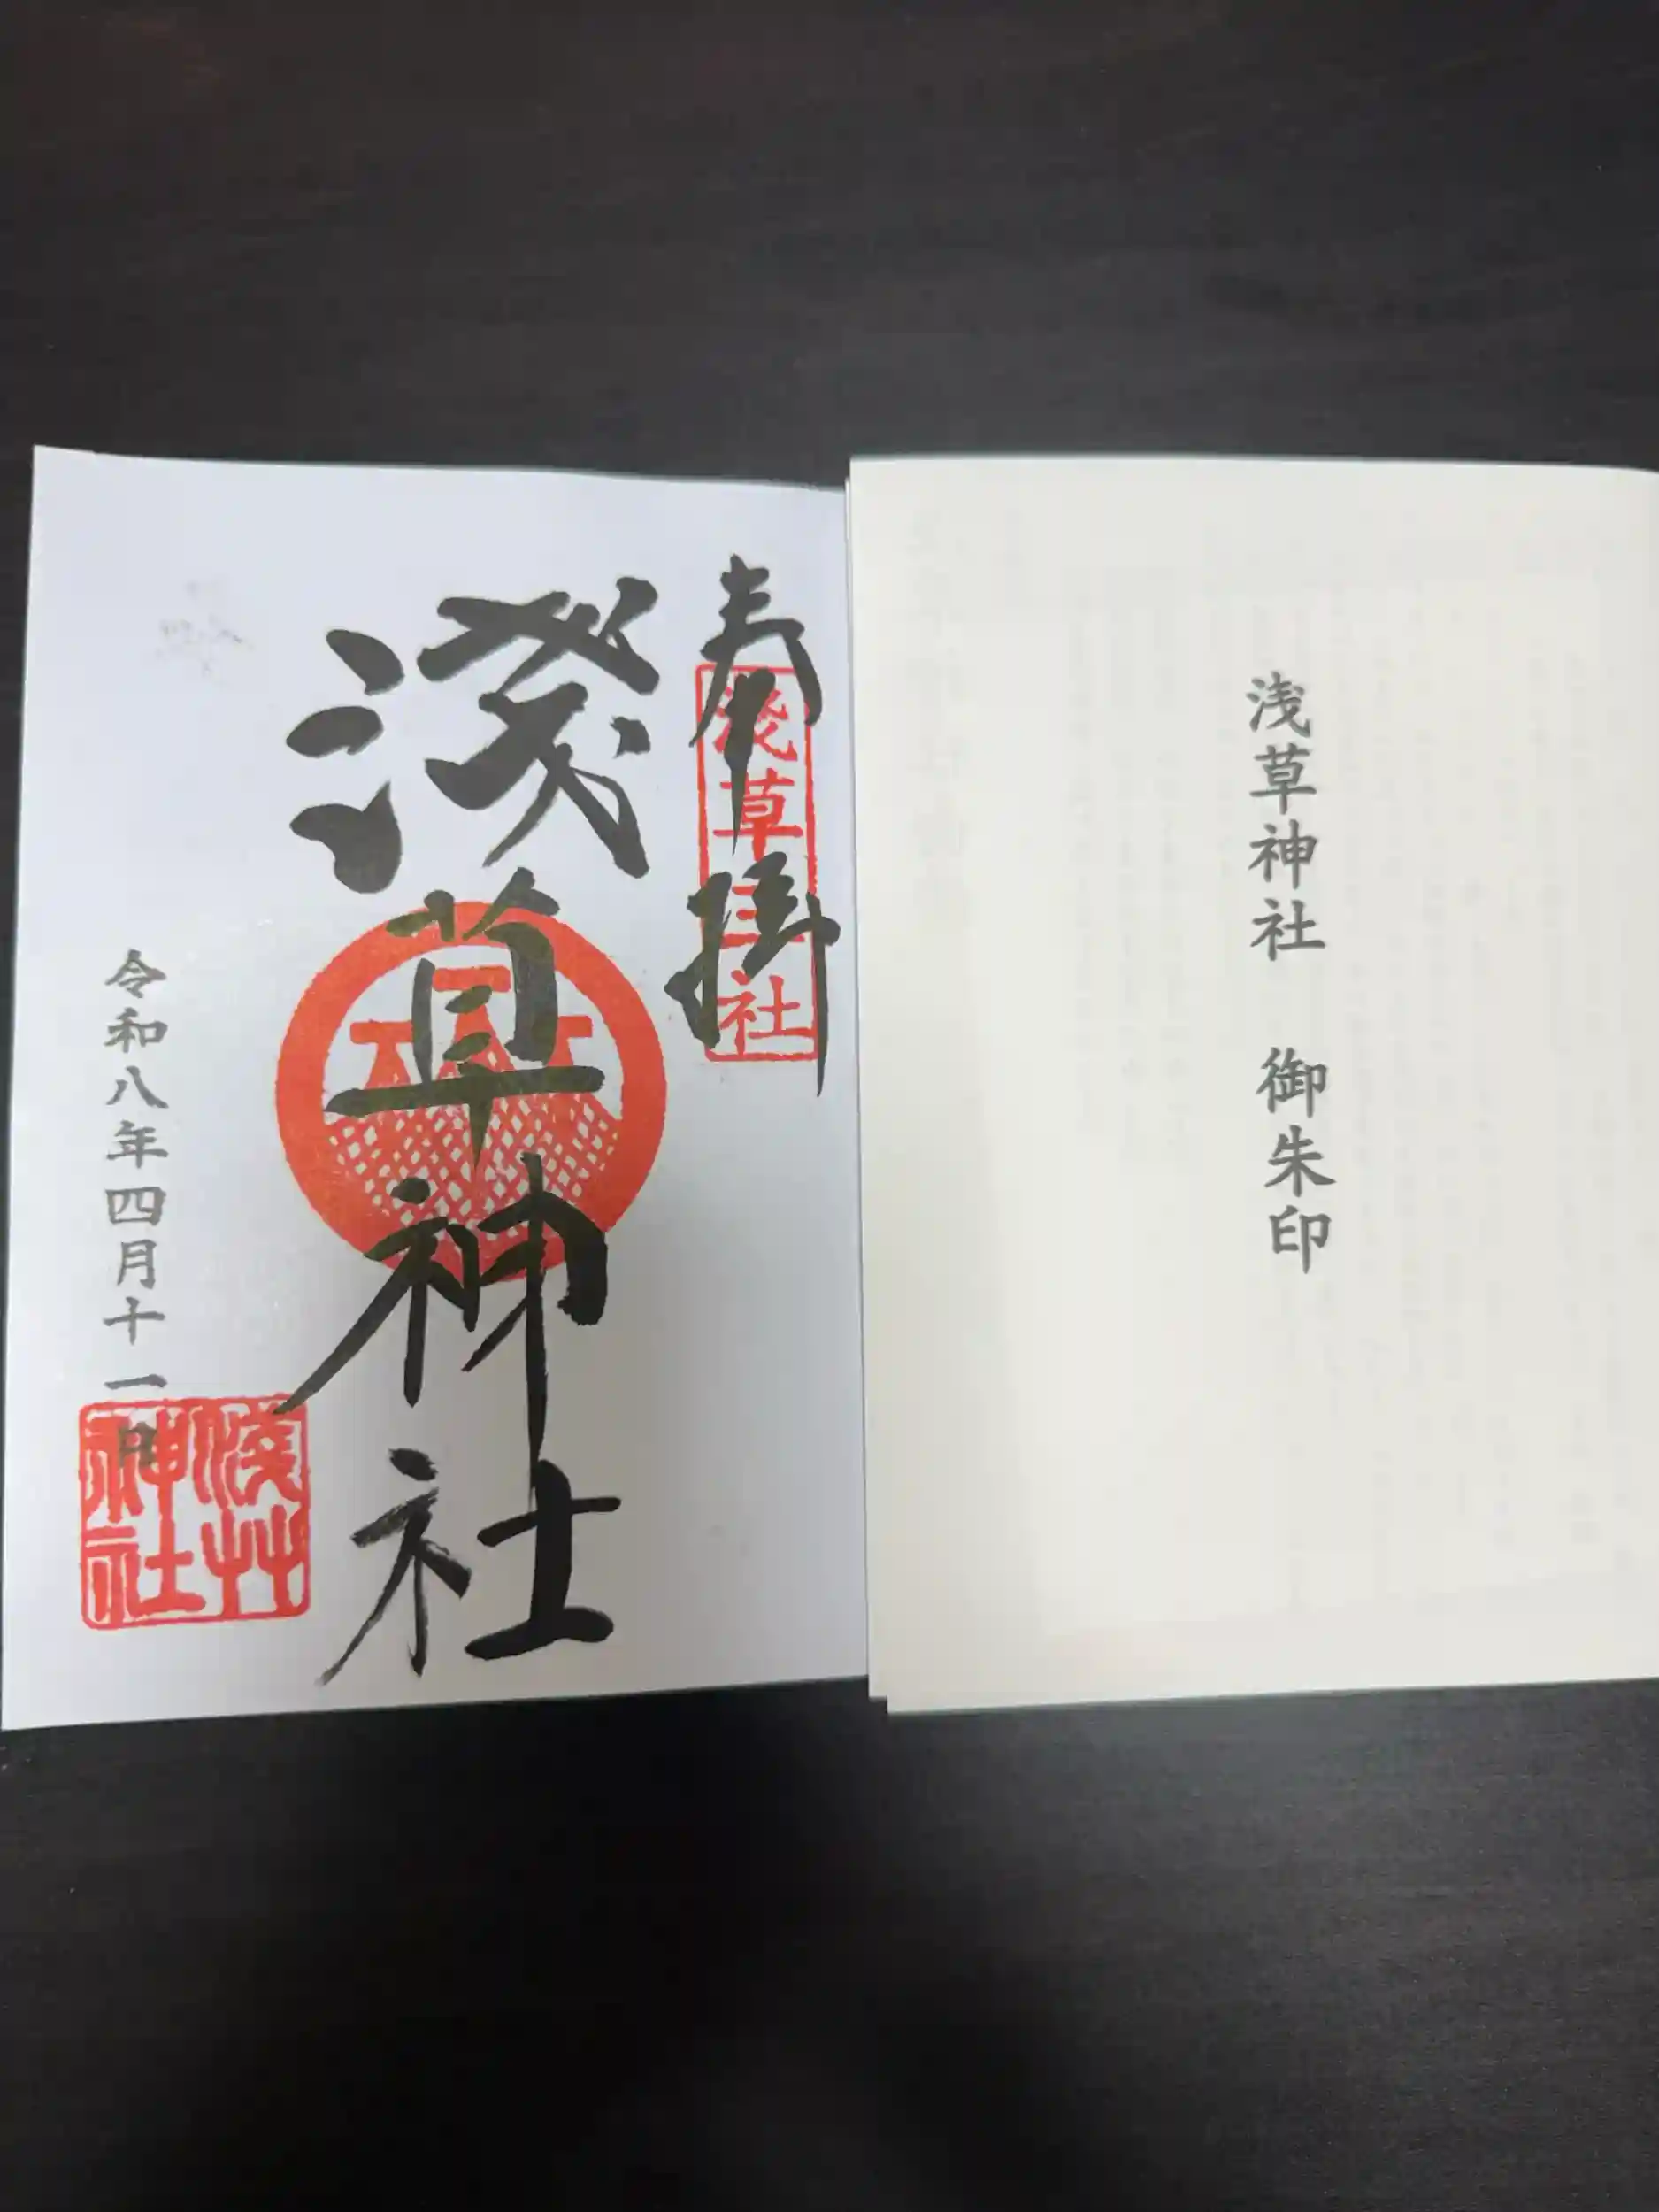 浅草神社 御朱印
奉拝
淺草三社
淺草神社
令和八年四月十一日
淺艸神社